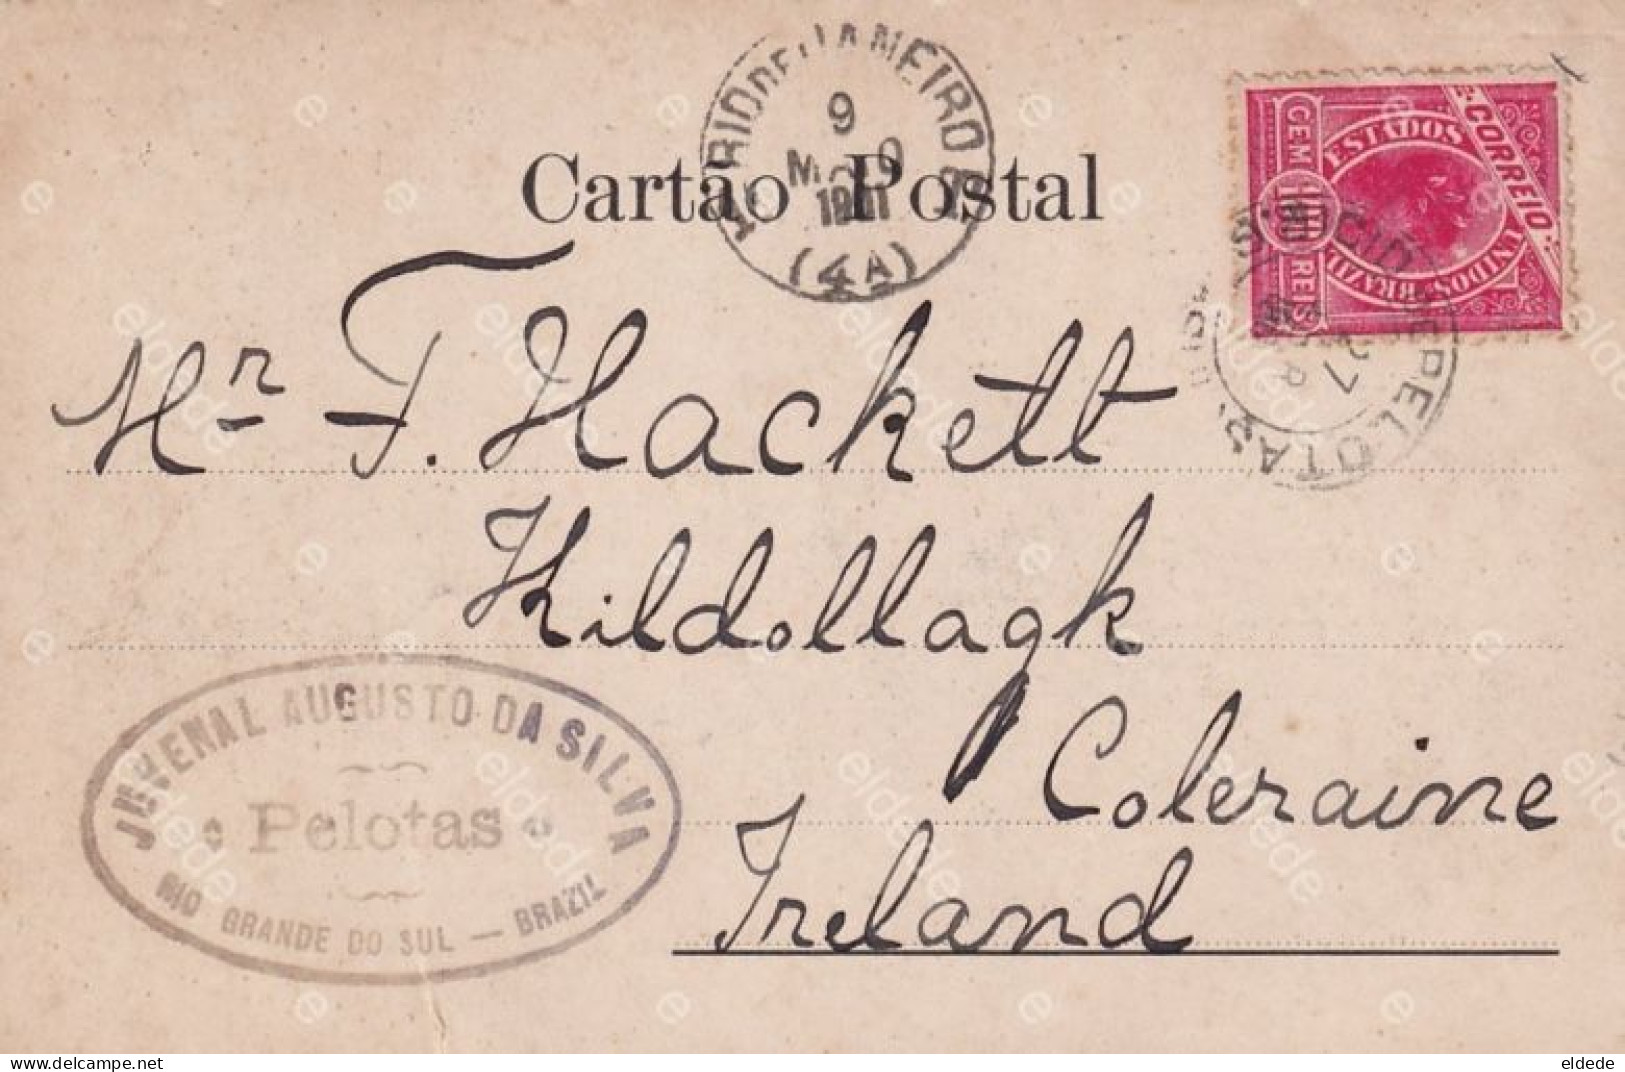 RIO DE JANEIRO
9
1901
(4A)
Cartão Postal
CORREIO
ESTADOS UNIDOS BRAZIL
CEM 100 REIS
PELOTAS
27
Mr F. Hackett
Kildollagh
Coleraine
Ireland
JUVENAL AUGUSTO DA SILVA
Pelotas
RIO GRANDE DO SUL — BRAZIL
eldede